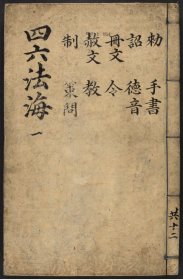 勅 手書
詔 德音
冊文 令
赦文 教
制 策問
四六法海 一
共十二